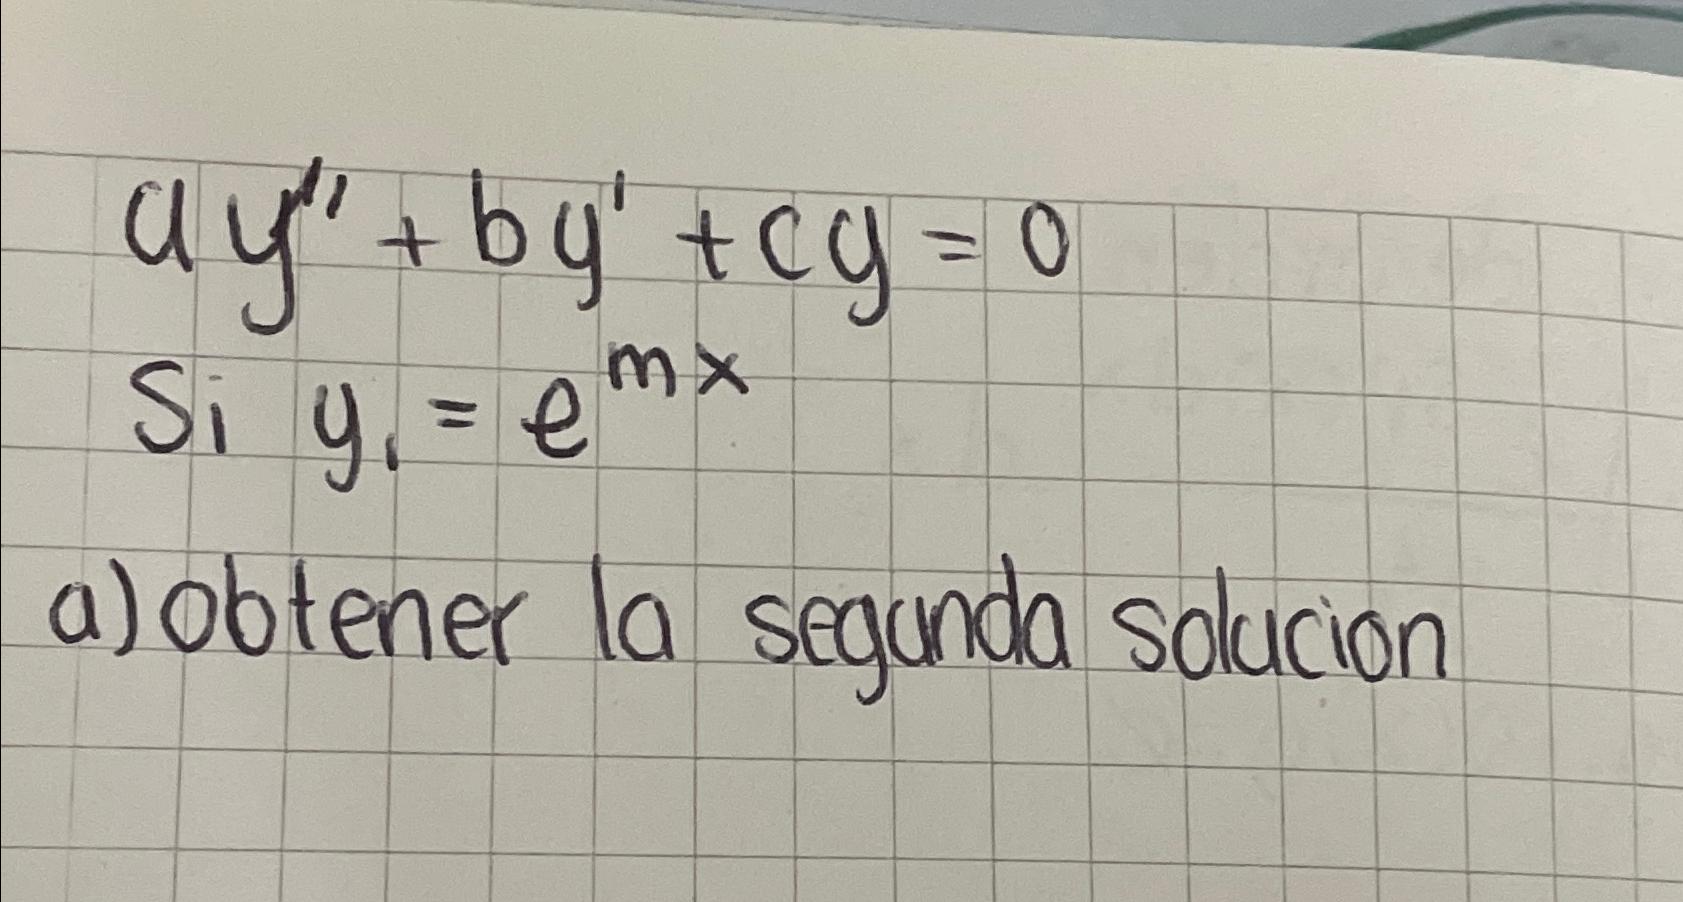 ay'' + by' + cy = 0
Si y₁ = e^{mx}
a) obtener la segunda solucion